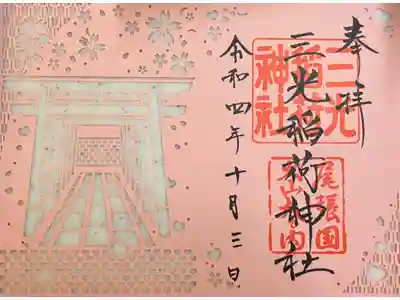 奉拝
三光稲荷神社
三光
稲荷
神社
尾張国
犬山城内
令和四年十月三日